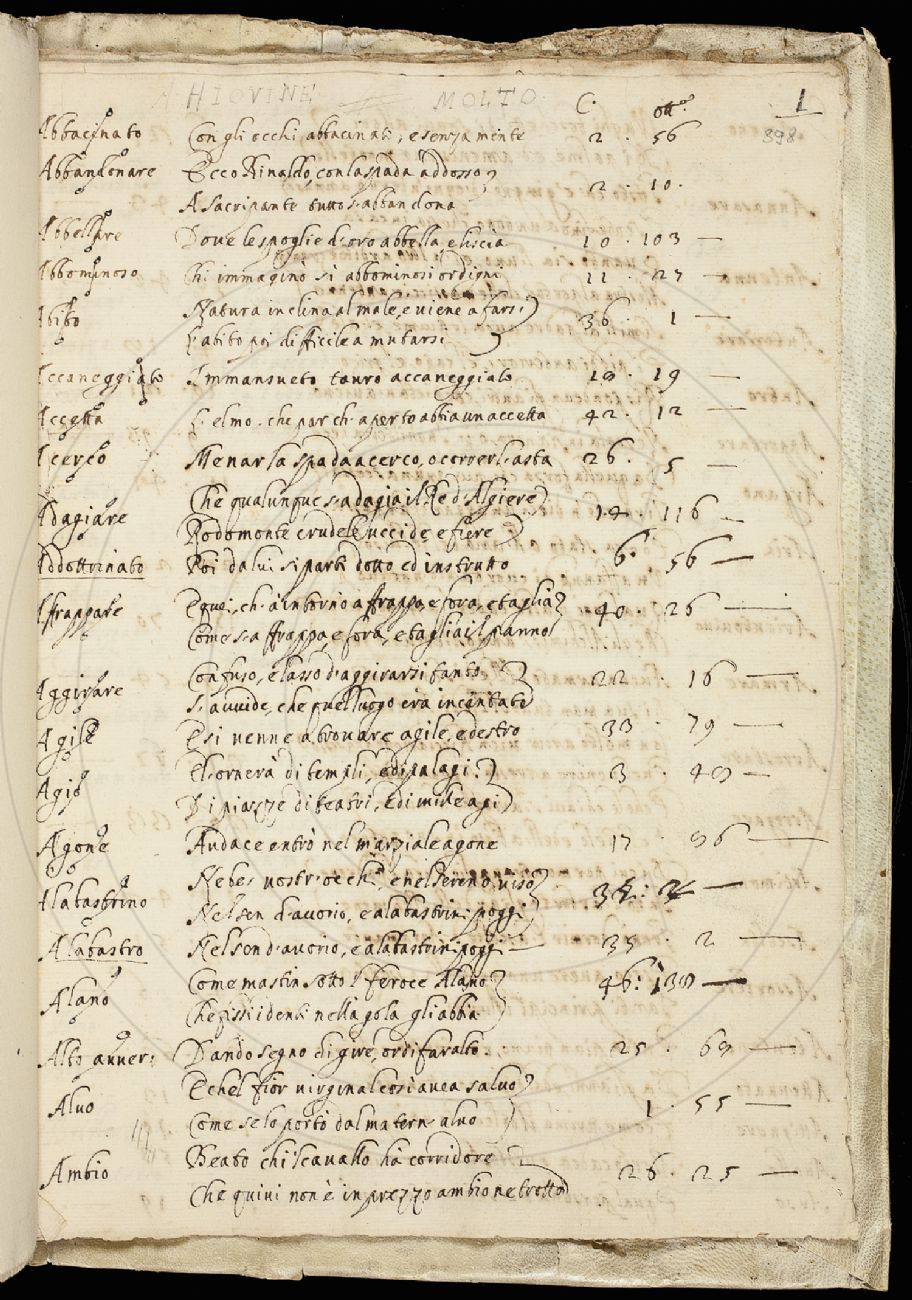 A HIOVINE MOLTO. C. ott.e 1
398
Abbacinato Con gli occhi abbacinati, e senza mente 2 . 56
Abbandonare Ecco Rinaldo, con la spada addosso
A Sacripante tutto s'abbandona 2 . 10.
Abbellire Doue le spoglie d'oro abbella, e liscia 10 . 103 —
Abbominoso Chi immaginò sì abbominosi ordigni 11 . 27 —
Abito Natura inclina al male, e uiene a farsi
L'abito poi difficile a mutarsi 36 . 1 —
Accaneggiato Immansueto tauro accaneggiato 18 . 19 —
Accetta L'elmo. che par ch'aperto abbia una accetta 42 . 12 —
Acerco Menar la spada a cerco, o correr l'asta 26 . 5 —
Adagiare Che qualunque s'adagia il Re d'Algiere
Rodomonte crudele uccide, e fiere 14 . 116 —
Addottrinato Poi da lui si partì dotto ed instrutto 6 . 56 —
Affrappare E quei, ch'à intorno affrappa, e fora, e taglia
Come s'affrappa, e fora, e taglia il panno 40 . 26 —
Aggirare Confuso, e lasso d'aggirarsi tanto
S'auuide, che quel luogo era incantato 22 . 16 —
Agile E si uenne a trouare agile, e destro 33 . 79 —
Agio E l'ornerà di templi, e di palagi
Di piazze di teatri, e di mille agi 3 . 48 —
Agone Audace entrò nel marziale agone 17 . 86 —
Alabastrino Ne bei uostri occhi, e nel sereno uiso
Nel sen d'auorio, e alabastrini poggi
Alabastro Nel sen d'auorio, e alabastrini poggi — 35 . 2 —
Alano Come mastin sotto 'l feroce Alano
Che fissi i denti nella gola gli abbia 46 : 138 —
Alto auuer: Dando segno di gire, or di far alto. 25 . 68 —
Aluo E che 'l fior uirginal così auea saluo
Come se lo portò dal matern'aluo 1 . 55 —
Ambio Beato chi 'l cauallo ha corridore
Che quiui non è in prezzo ambio ne trotto 26 . 25 —